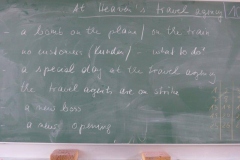 At Heaven's travel agency
- a bomb on the plane / on the train
- no customers (Kunden) - what to do?
- a special day at the travel agency
- the travel agents are on strike
- a new boss
- a new opening